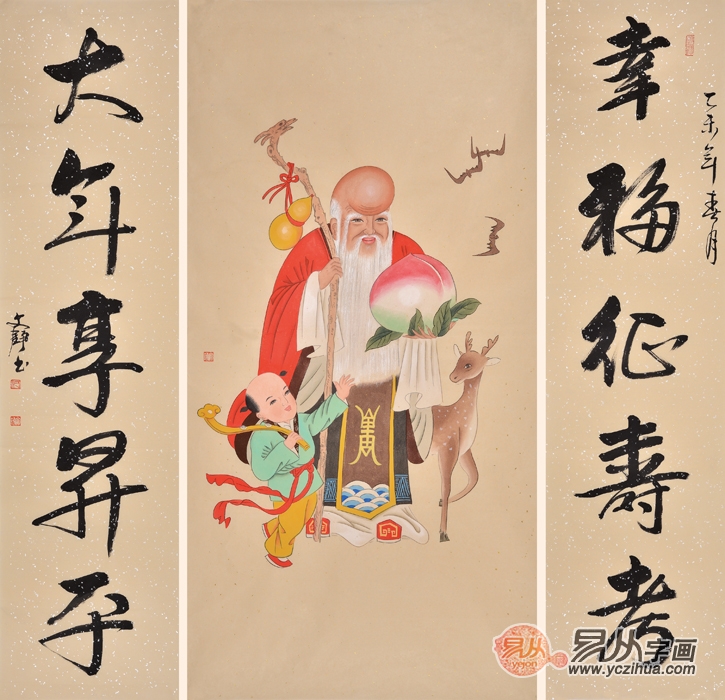 幸福征寿考
乙未年春月
大年享昇平
文静书
易从
yejon
易从字画
www.yczihua.com